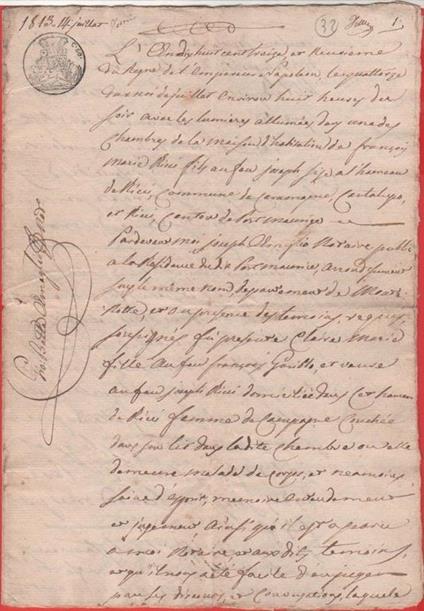 1813. 14 juillet
32
1
L'An dix huit cent treize et neuvieme
du Regne de l'Empereur Napoleon, le quatorze
du mois de juillet environ huit heures du
soir avec les lumieres allumées dans une des
chambres de la maison d'habitation de françois
Marie Ricci fils du feu joseph size a l'hameau
de Ricci, Commune de
et Ricci, Canton de Port maurice
Pardevant moi joseph Notaire public
a la Residence du dit Port maurice, arrondissement
du même nom, Departement de Monte
notte, et en presence des temoins requis
soussignés fut presente Claire Marie
fille du feu françois et veuve
du feu joseph Ricci domiciliée dans cet hameau
de Ricci femme de Campagne Couchée
dans son lit dans la dite chambre ou elle
demeure malade de corps, et neanmoins
saine d'esprit, memoire entendement
et jugement ainsi qu'il est apparu
a moi Notaire et aux dits temoins,
et qu'il nous a été facile d'en juger
par ses discours, et Conversations, laquelle